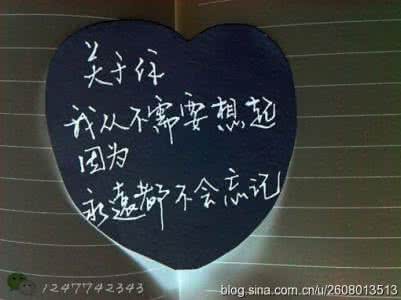 关于你
我从不需要想起
因为
永远都不会忘记
1247742343
blog.sina.com.cn/u/2608013513